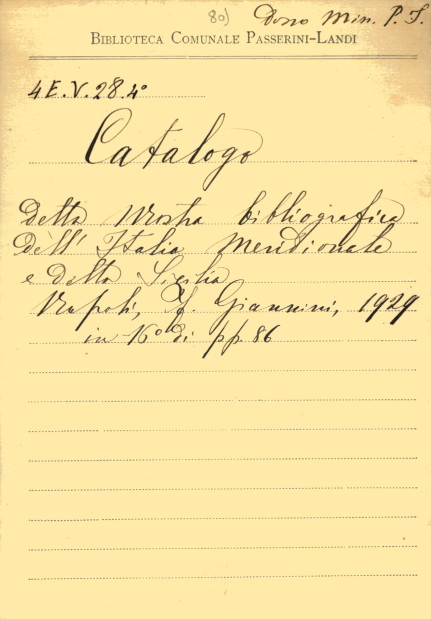 80) Dono Min. P. I.
BIBLIOTECA COMUNALE PASSERINI-LANDI
4E.V.28.4°
Catalogo
della Mostra bibliografica
dell' Italia Meridionale
e della Sicilia
Napoli, F. Giannini, 1929
in 16° di pp. 86